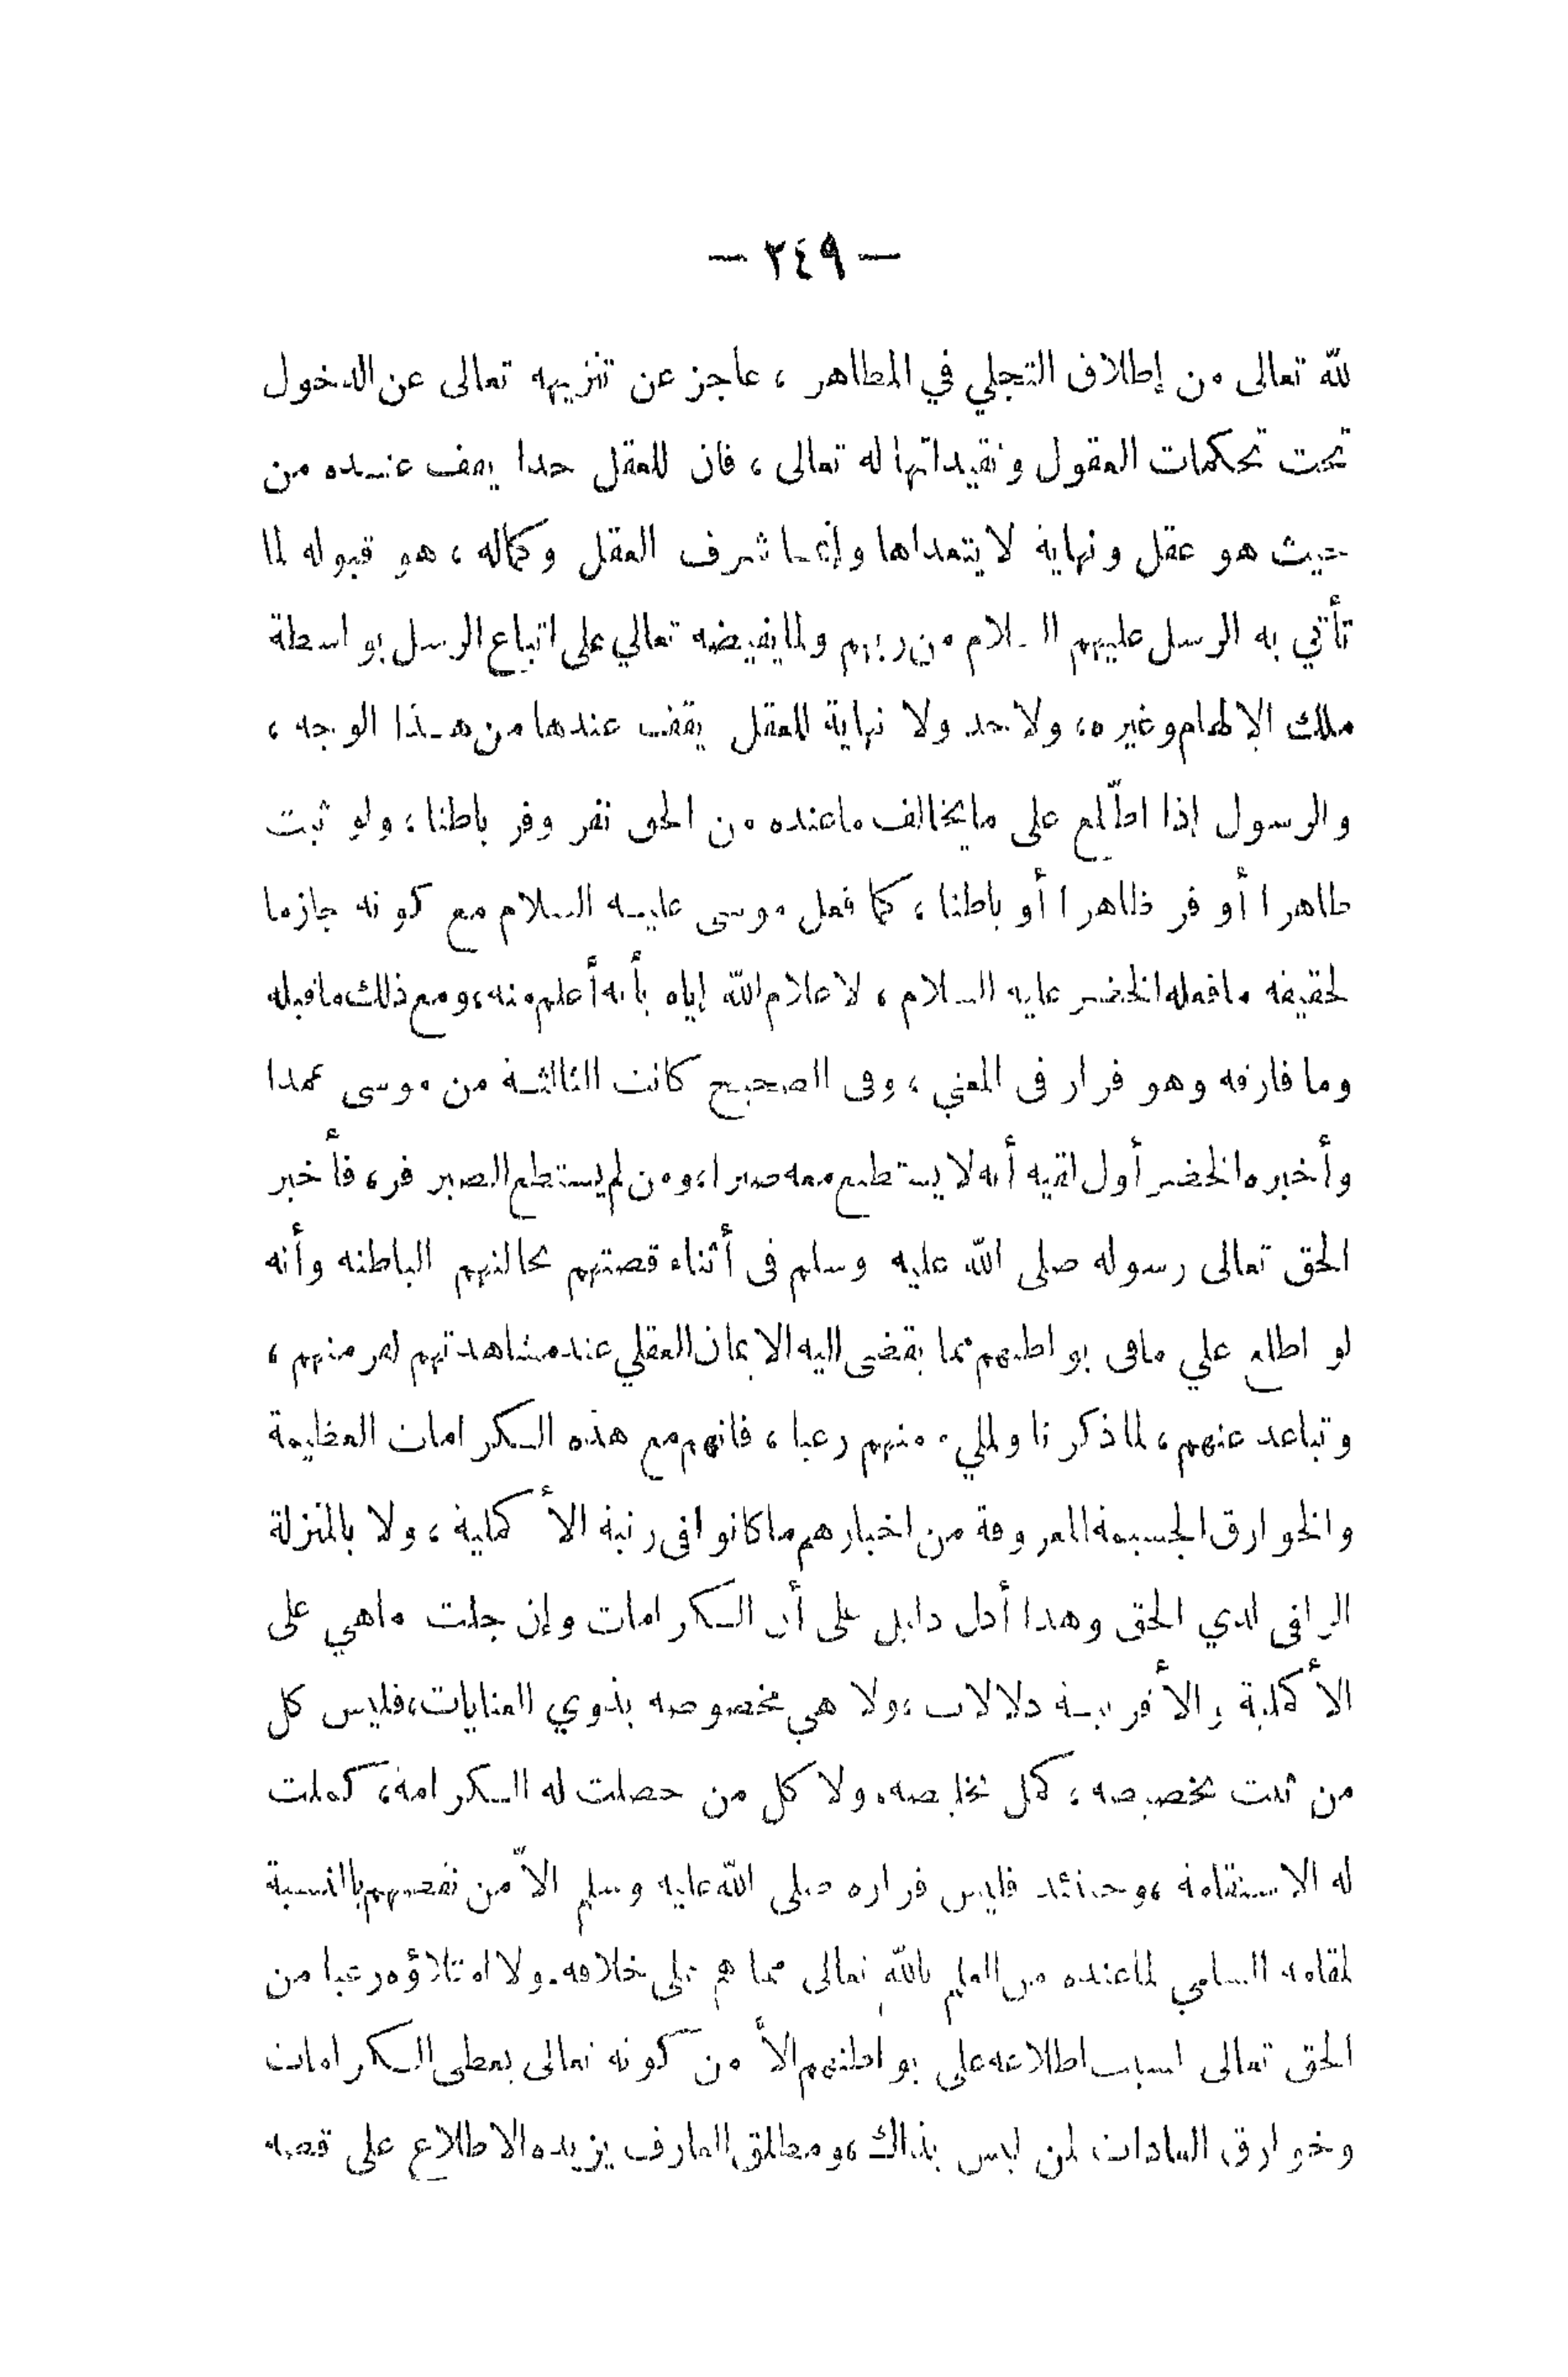 — ٢٤٩ —
لله تعالى من إطلاق التجلي في المظاهر ، عاجز عن تنزيهه تعالى عن الدخول
تحت تحكمات العقول وتقيداتها له تعالى ، فان للعقل حدا يقف عنده من
حيث هو عقل ونهاية لا يتعداها وإنما شرف العقل وكماله ، هو قبوله لما
تأتي به الرسل عليهم السلام من ربهم ولما يفيضه تعالي على اتباع الرسل بواسطة
ملك الإلهام وغيره، ولا حد ولا نهاية للعقل يقف عندها من هذا الوجه ،
والرسول إذا اطّلع على ما يخالف ما عنده من الحق نفر وفر باطنا ، ولو ثبت
ظاهرا أو فر ظاهرا أو باطنا ، كما فعل موسى عليه السلام مع كونه جازما
لحقيقة ما فعله الخضر عليه السلام ، لاعلام الله إياه بأنه أعلم منه، ومع ذلك ما قبله
وما فارقه وهو فرار فى المعني ، وفى الصحيح كانت الثالثة من موسى عمدا
وأخبره الخضر أول لقيه أنه لا يستطيع معه صبرا، ومن لم يستطع الصبر فر، فأخبر
الحق تعالى رسوله صلى الله عليه وسلم فى أثناء قصتهم بحالتهم الباطنه وأنه
لو اطلع علي ما فى بواطنهم مما يقضى اليه الايمان العقلي عند مشاهدتهم لفر منهم ،
وتباعد عنهم ، لما ذكرنا ولملي منهم رعبا ، فانهم مع هذه الكرامات العظيمة
والخوارق الجسيمة المعروفة من اخبارهم ما كانوا فى رتبة الأكملية ، ولا بالمنزلة
الراقى لدي الحق وهذا أدل دليل على أن الكرامات وإن جلت ما هي على
الأكملية والأقربية دلالات ، ولا هي مخصوصه بذوي العنايات، فليس كل
من ثبت تخصيصه ، كمل تخليصه، ولا كل من حصلت له الكرامة، كملت
له الاستقامة ، وحينئذ فليس فراره صلى الله عليه وسلم الاّ من نقصهم بالنسبة
لمقامه السامي لما عنده من العلم بالله تعالى مما هم على خلافه. ولا امتلاؤه رعبا من
الحق تعالى لسبب اطلاعه على بواطنهم الأ من كونه تعالى يعطى الكرامات
وخوارق العادات لمن ليس بذاك ، ومطلق العارف يزيده الاطلاع على قصه